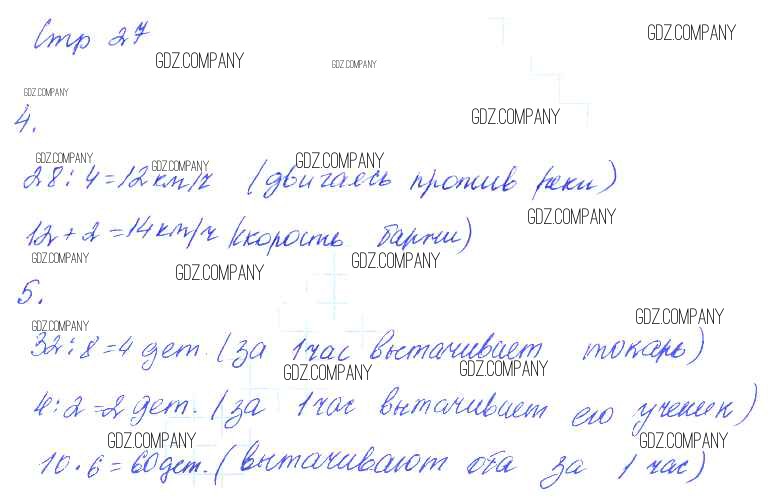 Стр 27
GDZ.COMPANY
GDZ.COMPANY
GDZ.COMPANY
GDZ.COMPANY
GDZ.COMPANY
4.
GDZ.COMPANY
GDZ.COMPANY
GDZ.COMPANY
28:4=12км/ч (двигаясь против реки)
GDZ.COMPANY
12+2=14км/ч (скорость баржи)
GDZ.COMPANY
GDZ.COMPANY
GDZ.COMPANY
5.
GDZ.COMPANY
GDZ.COMPANY
32:8=4 дет. (за 1 час вытачивает токарь)
GDZ.COMPANY
GDZ.COMPANY
4:2=2 дет. (за 1 час вытачивает его ученик)
GDZ.COMPANY
GDZ.COMPANY
10·6=60дет. (вытачивают оба за 1 час)